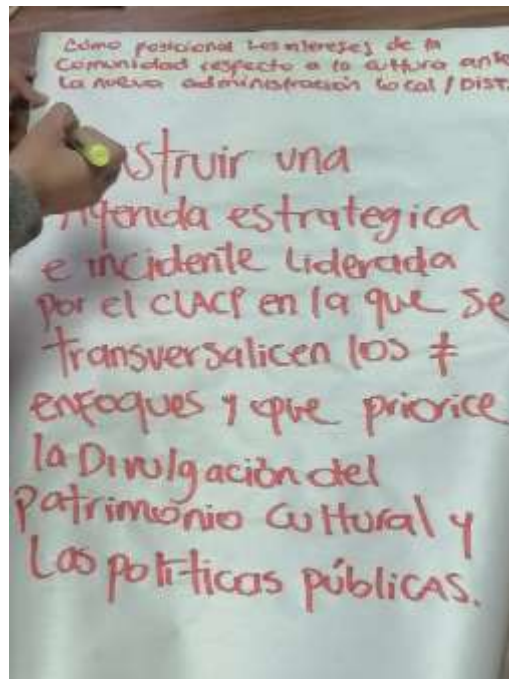 Cómo posicional los intereses de la
Comunidad respecto a la cultura ante
La nueva administración Local / DIST.
struir una
Agenda estrategica
e incidente Liderada
por el CLACP en la que se
transversalicen los ≠
enfoques y que priorice
la Divulgación del
Patrimonio Cultural y
Las políticas públicas.